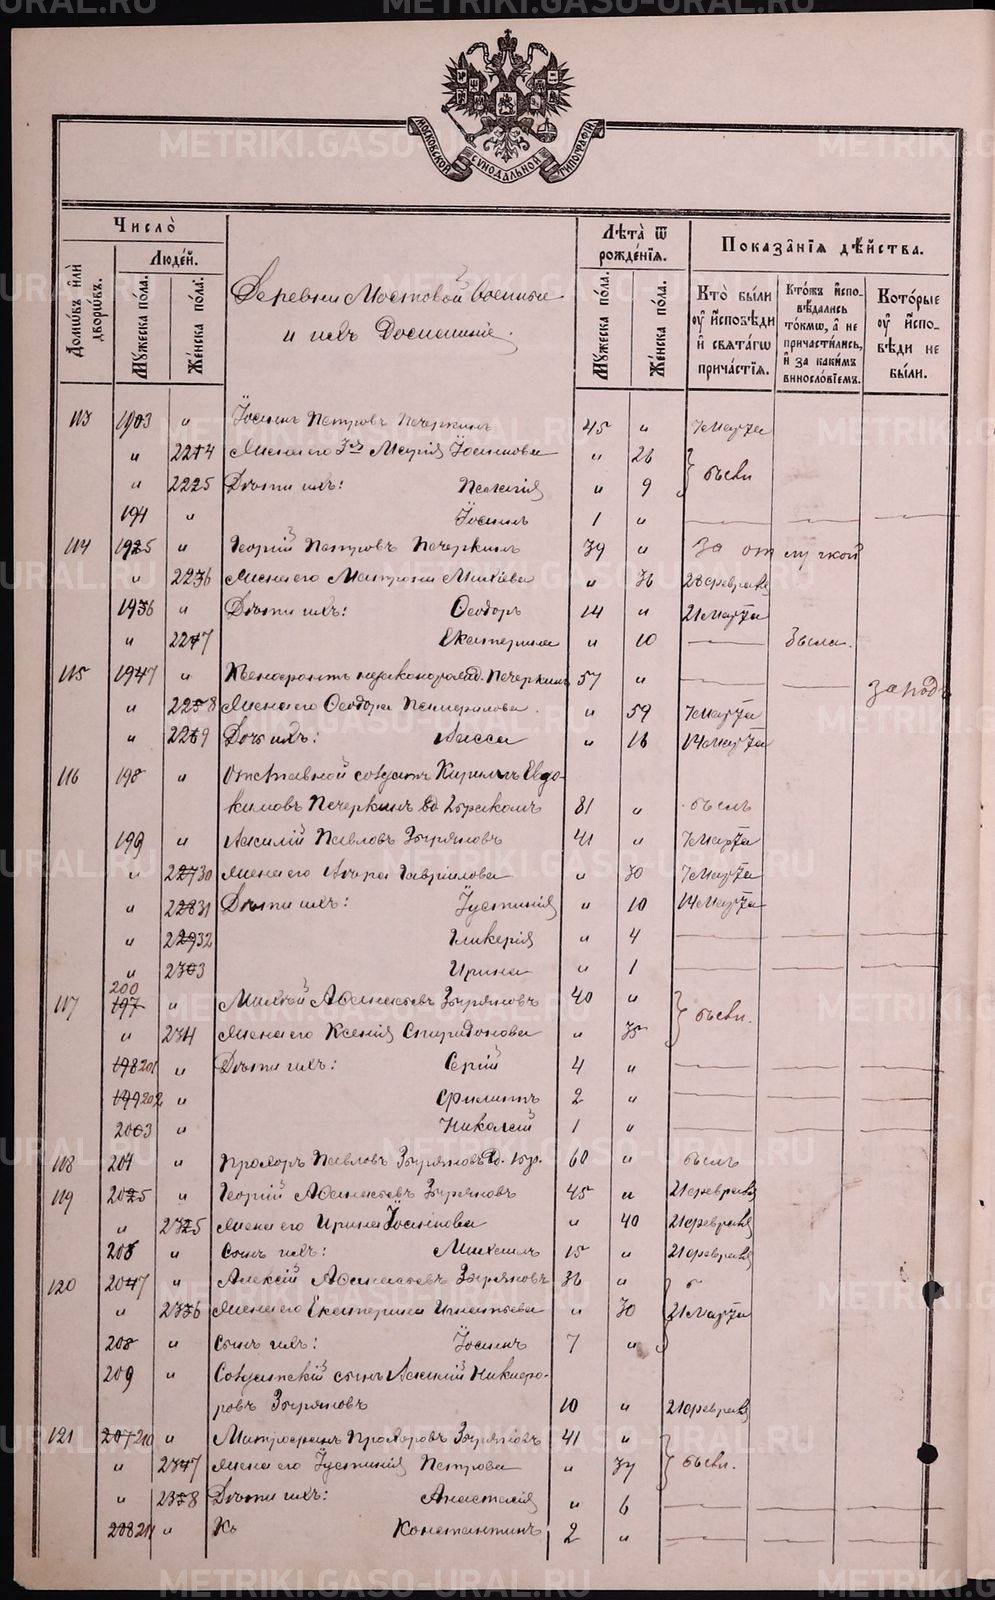 МОСКОВСКОЙ СѴНОДАЛЬНОЙ ТИПОГРАФІИ
Число̀
Домѡвъ и҆лѝ дворѡвъ.
Людей.
Мꙋжеска пола.
Женска пола.
Деревни Мостовой военные
и ихъ домашніе.
Лѣта̀ ѿ рожденїѧ.
Мꙋжеска пола.
Женска пола.
Показанїѧ дѣйства.
Кто̀ были ᲂу҆ исповѣди и҆ свѧтагѡ причастїѧ.
Ктожъ исповѣдались токмѡ, а҆ не причастились, и҆ за какимъ винословїемъ.
Которые ᲂу҆ исповѣди не были.
113 1903 " Іосифъ Петровъ Печеркинъ 45 " 7 марта
" 2224 Жена его Марія Іосифова " 26 } были
" 2225 Дѣти ихъ: Пелагія " 9
194 " Іосифъ 1 "
114 1925 " Георгій Петровъ Печеркинъ 39 " за отлучкой
" 2236 Жена его Матрона Михеева " 36 28 февраля
1936 " Дѣти ихъ: Ѳеодоръ 14 " 21 марта
" 2247 Екатерина " 10 была.
115 1947 " Печеркинъ 57 "
" 2258 Жена его Ѳеодора Памфилова " 59 7 марта
" 2269 Дочь ихъ: Васса " 16 14 марта
116 198 " Отставной солдатъ Кириллъ Евдо-
кимовъ Печеркинъ 81 " былъ
199 " Василій Павловъ Зыряновъ 41 " 7 марта
" 22730 Жена его Гавріилова " 30 7 марта
" 22831 Дѣти ихъ: Іустинія " 10 14 марта
" 22932 Гликерія " 4
" 2303 Ирина " 1
200
117 197 " Михей Аѳанасьевъ Зыряновъ 40 " } были.
" 234 Жена его Ксенія Спиридонова " 35
198 201 " Дѣти ихъ: Сергій 4 "
199 202 " Филиппъ 2 "
2003 " Николай 1 "
118 204 " Прохоръ Павловъ Зыряновъ 60 " былъ
119 2025 " Георгій Аѳанасьевъ Зыряновъ 45 " 21 февраля
" 2325 Жена его Ирина Іосифова " 40 21 февраля
206 " Сынъ ихъ: Михаилъ 15 " 21 февраля
120 2047 " Алексій Аѳанасьевъ Зыряновъ 36 "
" 2336 Жена его Екатерина Игнатьева " 30 21 марта
208 " Сынъ ихъ: Іосифъ 7 "
209 " Солдатскій сынъ Василій Никифо-
ровъ Зыряновъ 10 " 21 февраля
121 207 210 " Митрофанъ Прохоровъ Зыряновъ 41 "
" 2347 Жена его Іустинія Петрова " 37 } были.
" 2358 Дѣти ихъ: Анастасія " 6
208 211 " Константинъ 2 "
METRIKI.GASO-URAL.RU